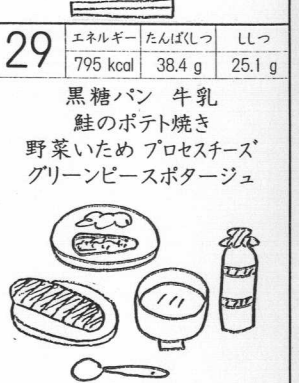 29
エネルギー たんぱくしつ ししつ
795 kcal 38.4 g 25.1 g
黒糖パン 牛乳
鮭のポテト焼き
野菜いため プロセスチーズ
グリーンピースポタージュ